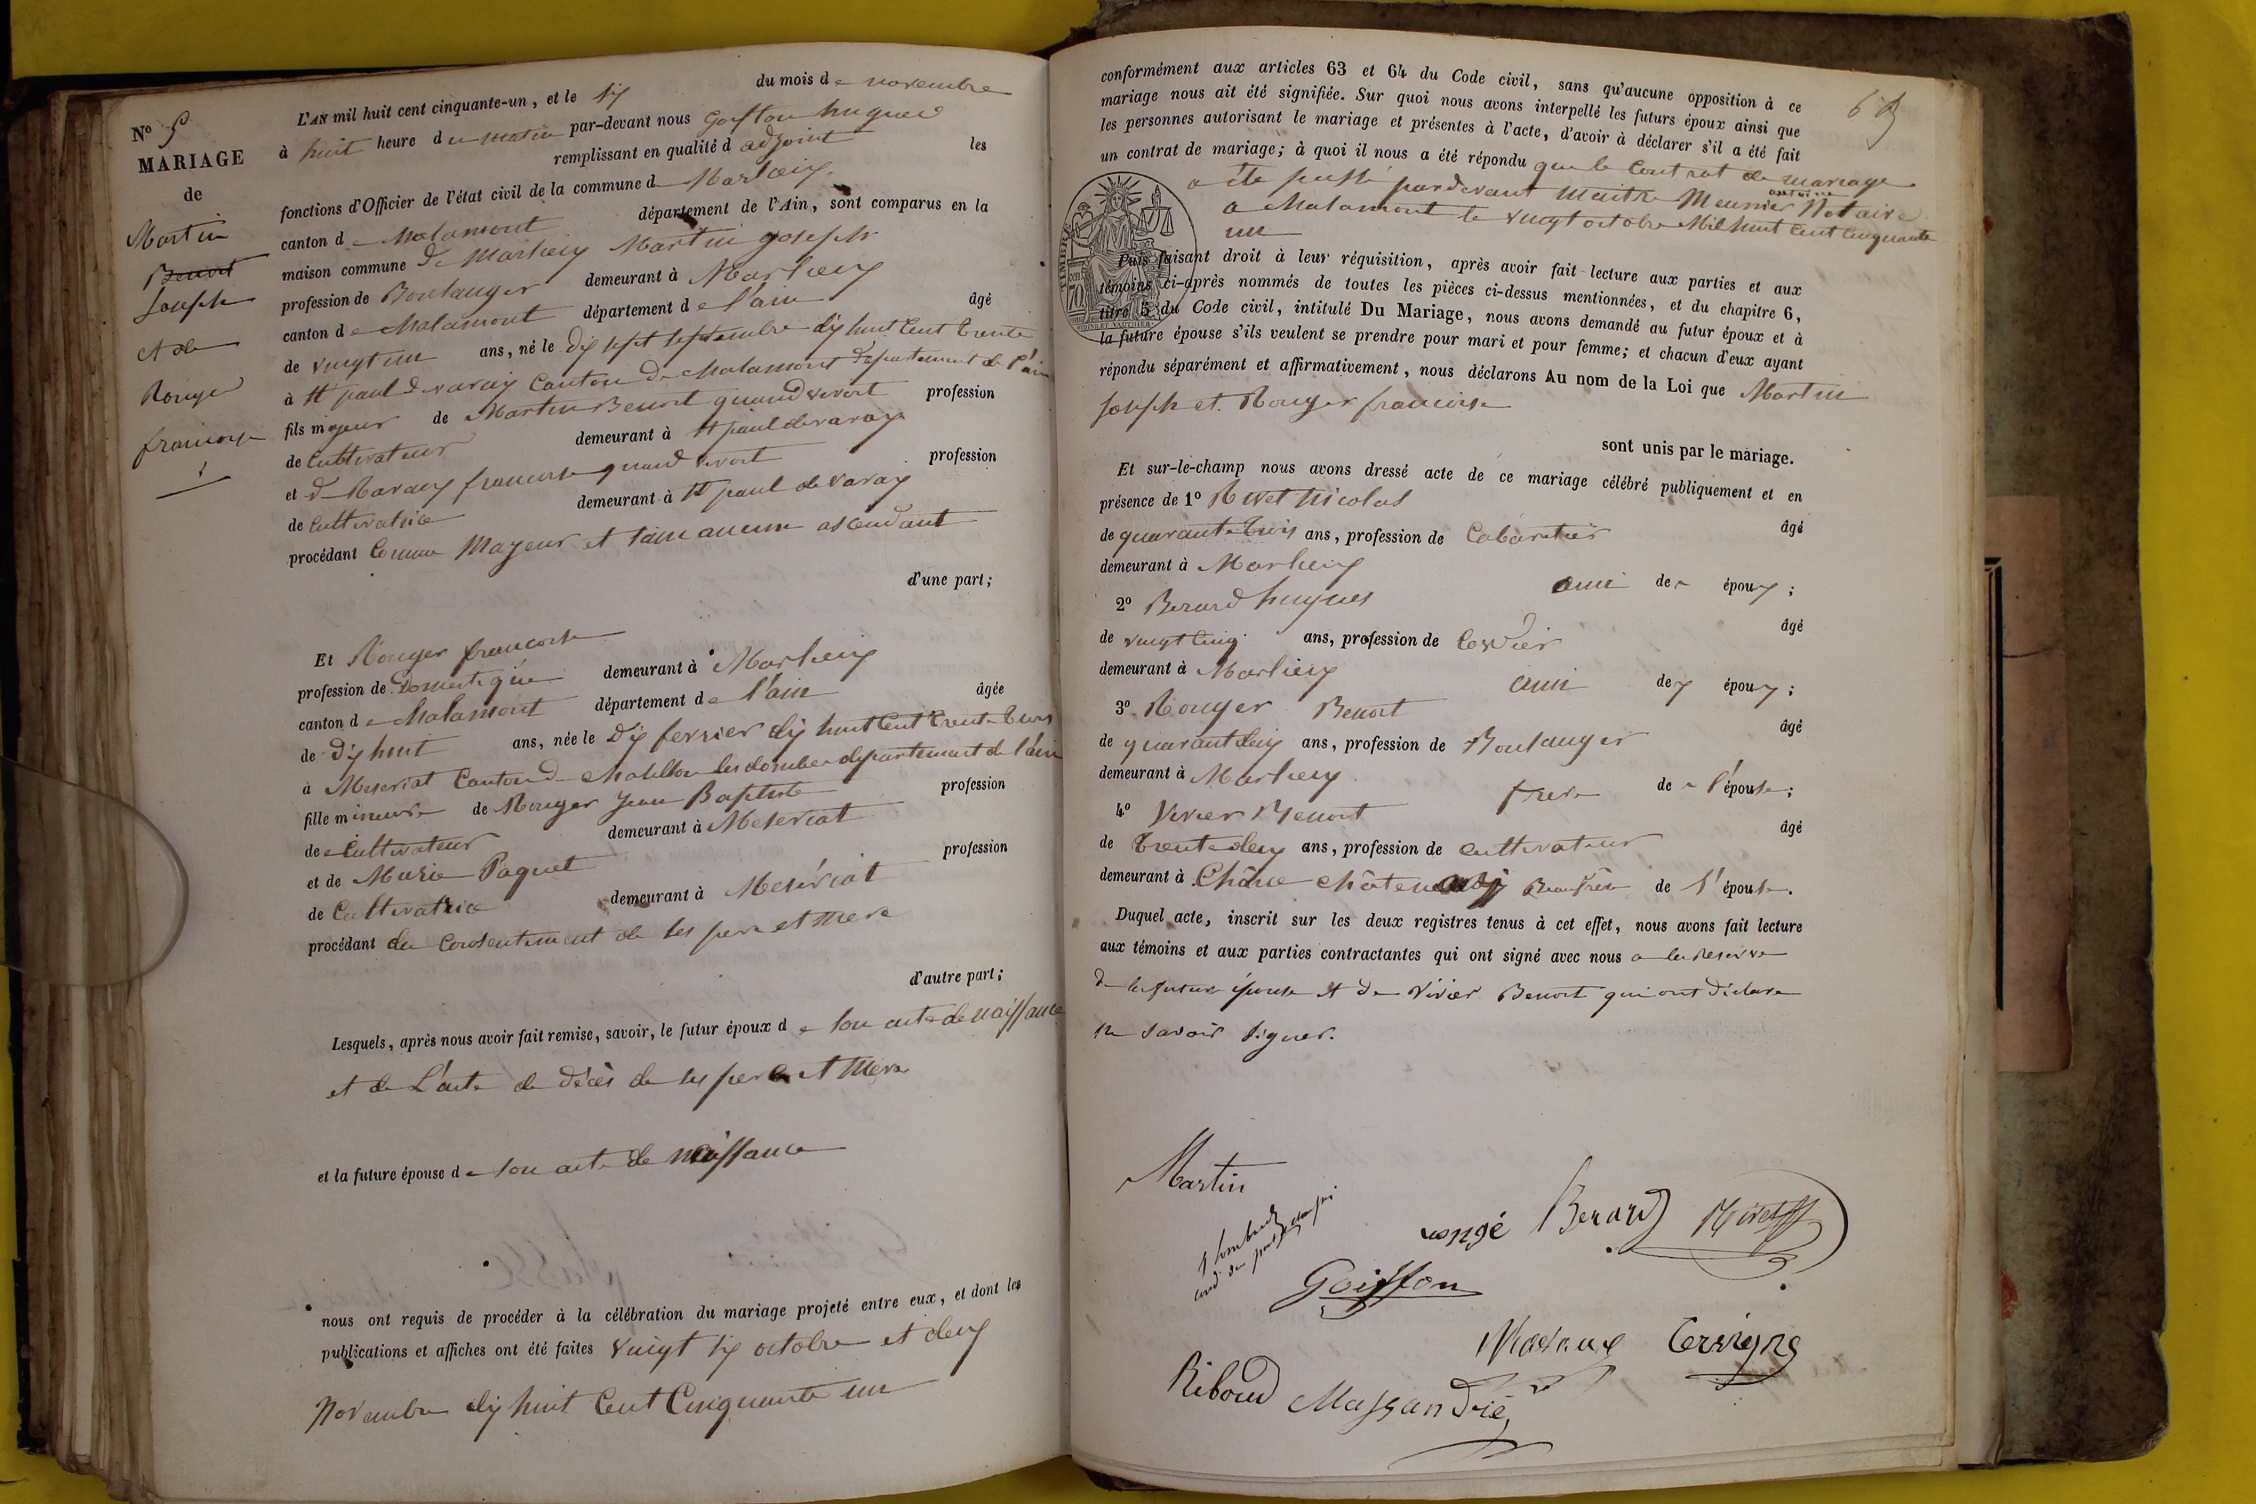 N° 5
MARIAGE
de
Martin
Benoit
Joseph
et de
Rouger
francoise
L'AN mil huit cent cinquante-un, et le six du mois de novembre
à huit heure du matin par-devant nous Goiffon hugues
remplissant en qualité d adjoint les
fonctions d'Officier de l'état civil de la commune d Marlieux
canton de Chalamont département de l'Ain, sont comparus en la
maison commune de Marlieux Martin joseph
profession de Boulanger demeurant à Marlieux
canton de Chalamont département de l'ain âgé
de vingt un ans, né le dix sept septembre dix huit Cent trente
à st paul de varax Canton de Chalamont département de l'ain
fils majeur de Martin Benoit quand vivoit profession
de Cultivateur demeurant à st paul de varax
et d francoise quand vivoit profession
de Cultivatrice demeurant à st paul de varax
procédant Comme Majeur et sans aucun ascendant
d'une part;
Et Rouger francoise
profession de Domestique demeurant à Marlieux
canton de Chalamont département de l'ain âgée
de dix huit ans, née le dix fevrier dix huit Cent trente trois
à Meseriat Canton de Chatillon les dombes departement de l'ain
fille mineure de Rouger Jean Baptiste profession
de Cultivateur demeurant à Meseriat
et de Marie Paquet profession
de Cultivatrice demeurant à Meseriat
procédant du Consentement de ses pere et mere
d'autre part;
Lesquels, après nous avoir fait remise, savoir, le futur époux de son acte de naissance
et de L'acte de décès de ses pere et Mere
et la future épouse de son acte de naissance
nous ont requis de procéder à la célébration du mariage projeté entre eux, et dont les
publications et affiches ont été faites vingt six octobre et deux
Novembre dix huit Cent Cinquante un
conformément aux articles 63 et 64 du Code civil, sans qu'aucune opposition à ce
mariage nous ait été signifiée. Sur quoi nous avons interpellé les futurs époux ainsi que
les personnes autorisant le mariage et présentes à l'acte, d'avoir à déclarer s'il a été fait
un contrat de mariage; à quoi il nous a été répondu que le Contrat de mariage
a été passé pardevant Maitre Meunier antoine Notaire
a Chalamont le vingt octobre Mil huit Cent Cinquante
un
Puis faisant droit à leur réquisition, après avoir fait lecture aux parties et aux
témoins ci-après nommés de toutes les pièces ci-dessus mentionnées, et du chapitre 6,
titre 5 du Code civil, intitulé Du Mariage, nous avons demandé au futur époux et à
la future épouse s'ils veulent se prendre pour mari et pour femme; et chacun d'eux ayant
répondu séparément et affirmativement, nous déclarons Au nom de la Loi que Martin
joseph et Rouger francoise
sont unis par le mariage.
Et sur-le-champ nous avons dressé acte de ce mariage célébré publiquement et en
présence de 1° Rivet Nicolas âgé
de quarante trois ans, profession de Cabaretier
demeurant à Marlieux ami de époux;
2° Berard hugues âgé
de vingt cinq ans, profession de
demeurant à Marlieux ami de époux;
3° Rouger Benoit âgé
de quarante deux ans, profession de Boulanger
demeurant à Marlieux frere de l'épouse;
4° Vivier Benoit âgé
de trente deux ans, profession de cultivateur
demeurant à Beaufrère de l'épouse.
Duquel acte, inscrit sur les deux registres tenus à cet effet, nous avons fait lecture
aux témoins et aux parties contractantes qui ont signé avec nous a la reserve
de la future épouse et de Vivier Benoit qui ont déclaré
ne savoir signer.
Martin
rongé Berard Rivet
Goiffon
Riboud